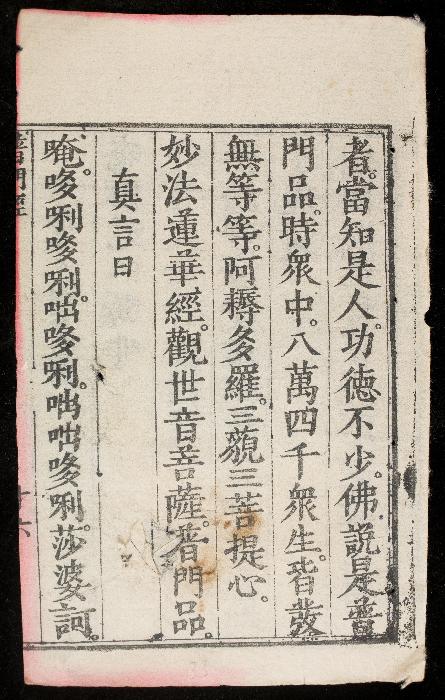 者。當知是人。功德不少。佛說是普
門品時。眾中。八萬四千眾生。皆發
無等等。阿耨多羅。三藐三菩提心。
妙法蓮華經。觀世音菩薩。普門品。
真言曰
唵。哆唎哆唎。咄哆唎。咄咄哆唎。莎婆訶。
普門經
十六